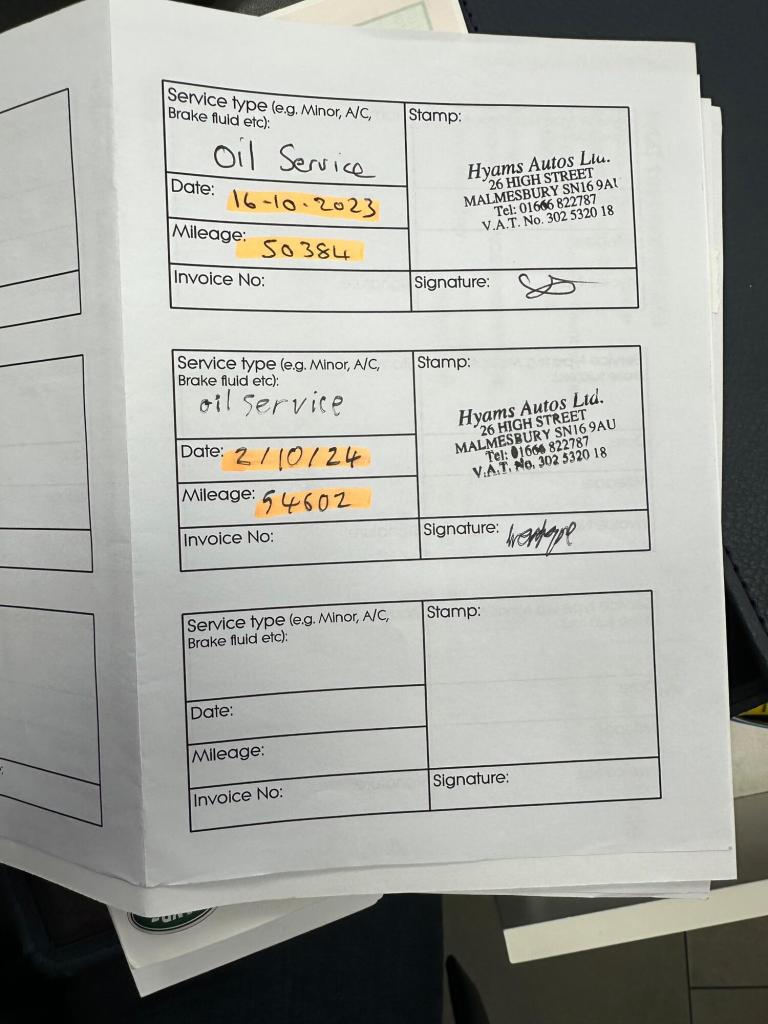 Service type (e.g. Minor, A/C,
Brake fluid etc):
Oil Service
Date: 16-10-2023
Mileage: 50384
Invoice No:
Stamp:
Hyams Autos Ltd.
26 HIGH STREET
MALMESBURY SN16 9AU
Tel: 01666 822787
V.A.T. No. 302 5320 18
Signature:
Service type (e.g. Minor, A/C,
Brake fluid etc):
oil service
Date: 2/10/24
Mileage: 54602
Invoice No:
Stamp:
Hyams Autos Ltd.
26 HIGH STREET
MALMESBURY SN16 9AU
Tel: 01666 822787
V.A.T. No. 302 5320 18
Signature:
Service type (e.g. Minor, A/C,
Brake fluid etc):
Date:
Mileage:
Invoice No:
Stamp:
Signature: